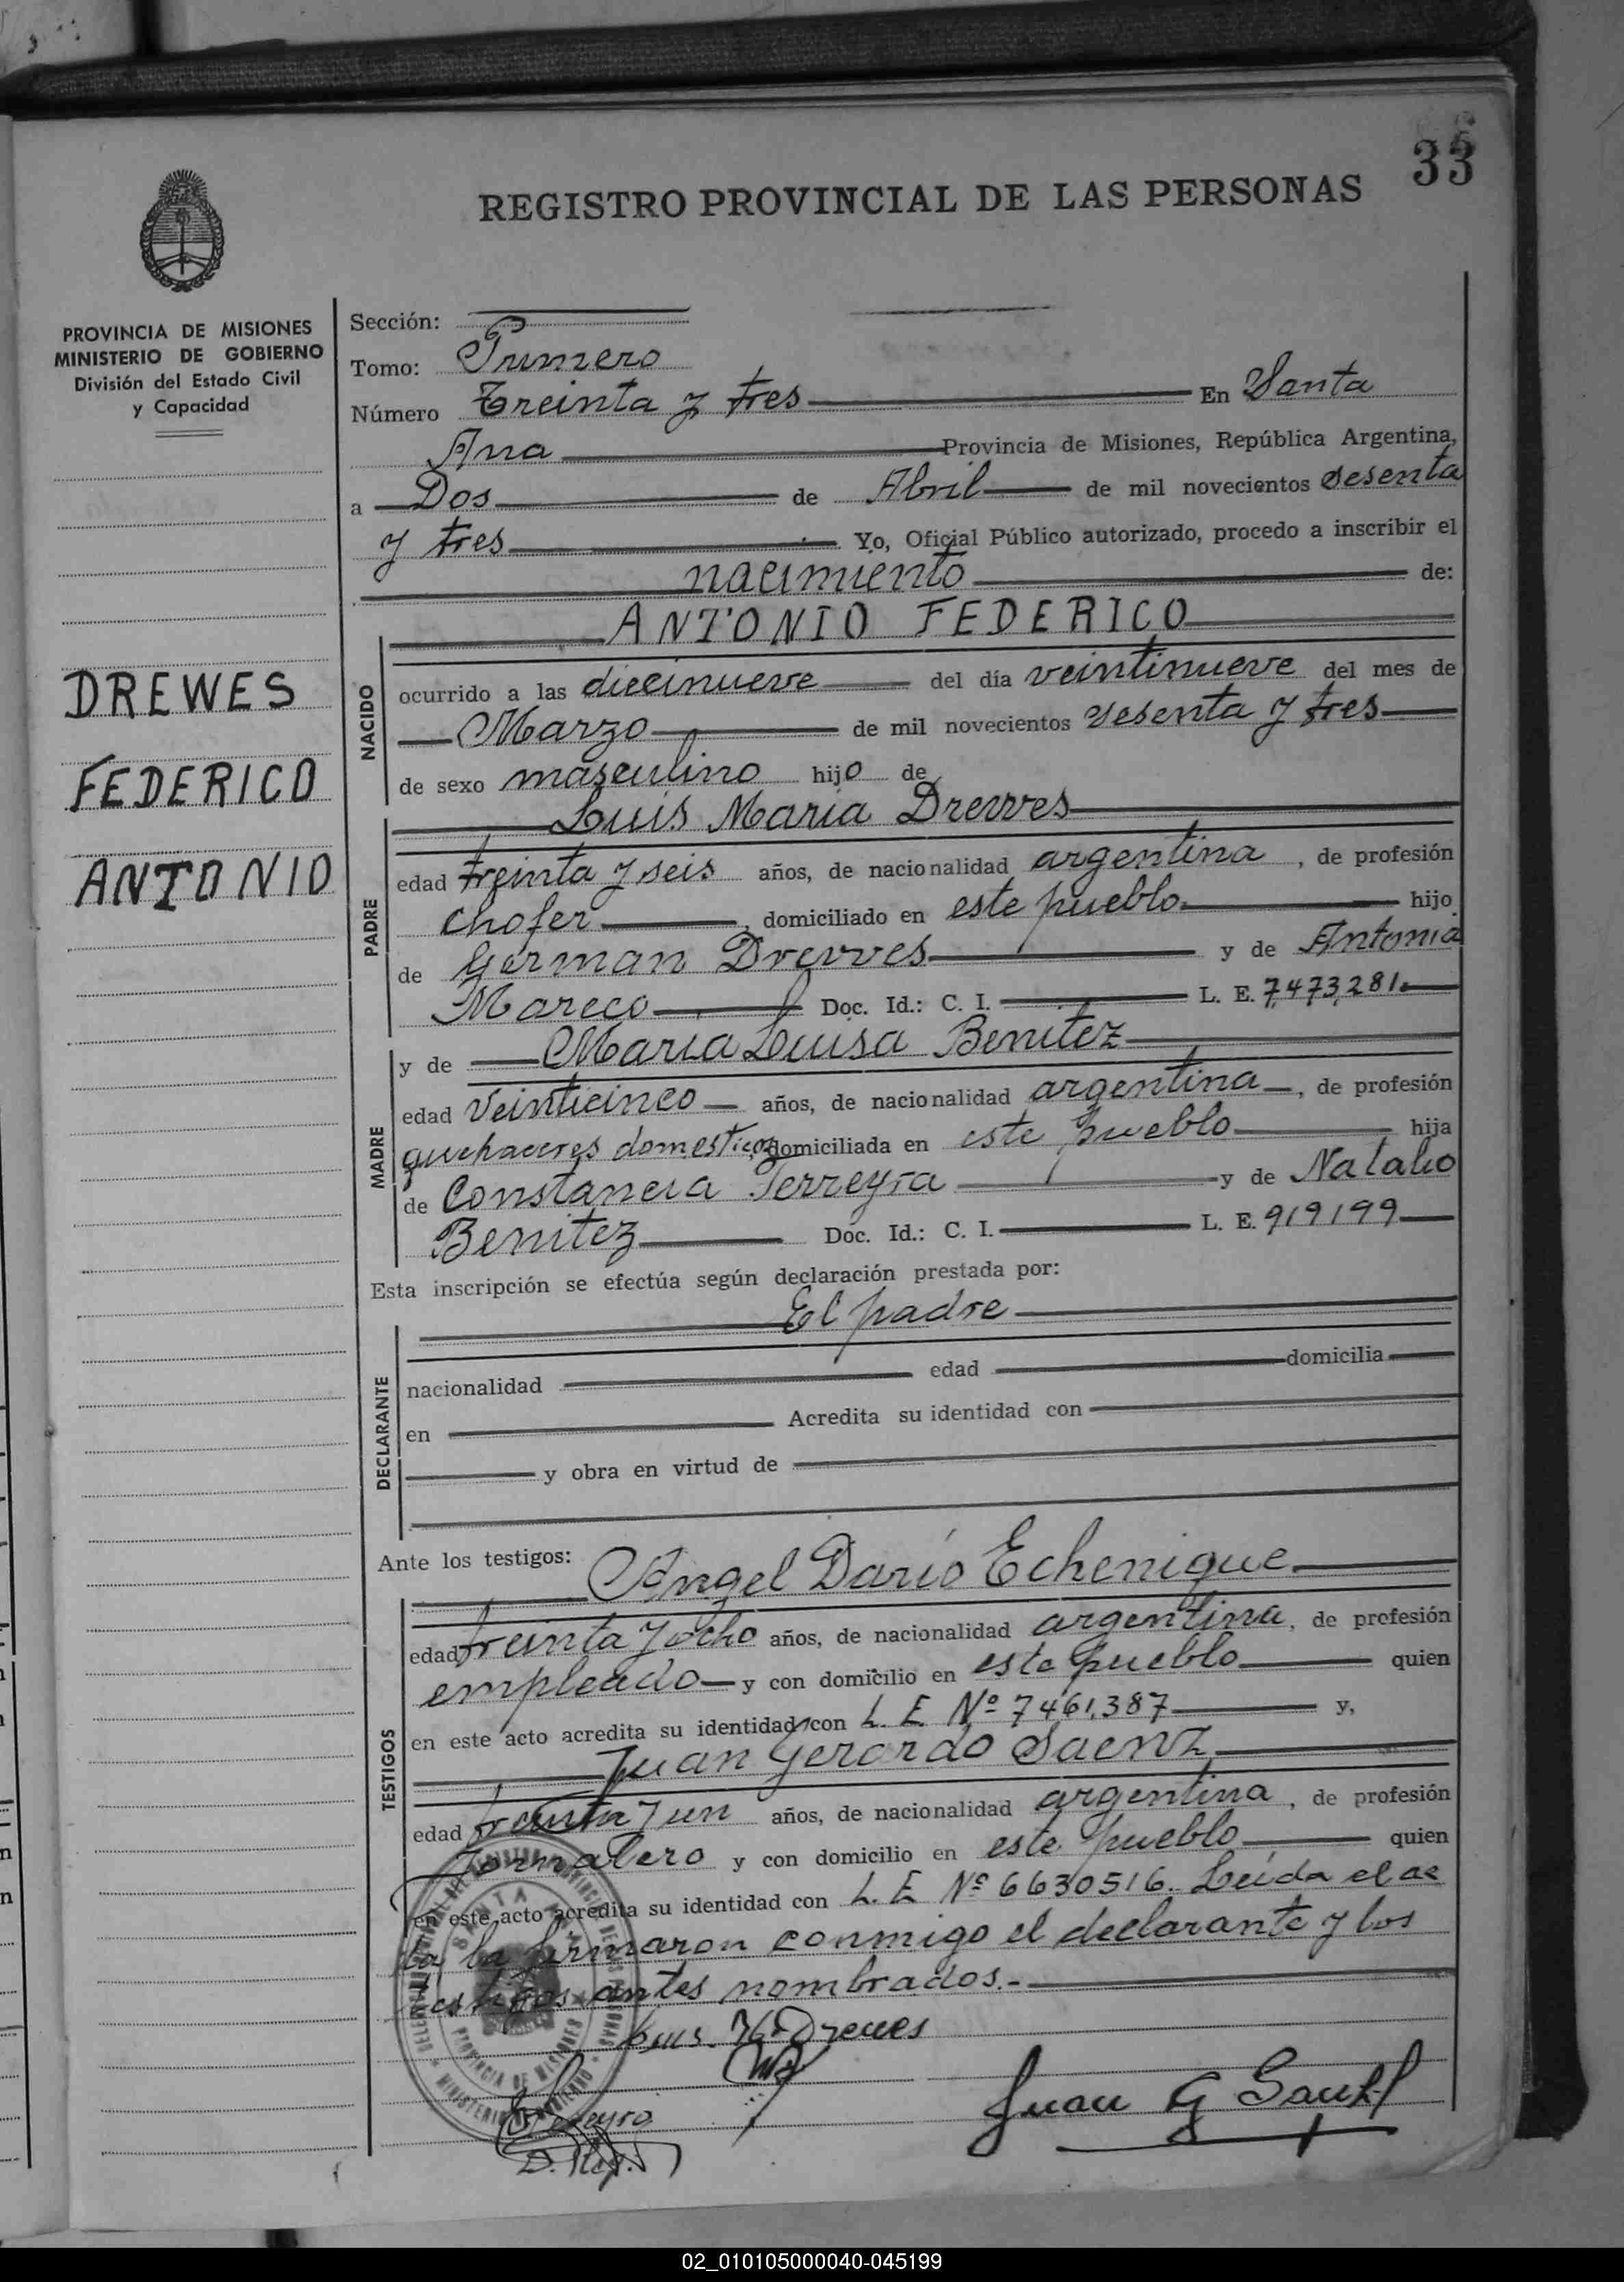 33
REGISTRO PROVINCIAL DE LAS PERSONAS
PROVINCIA DE MISIONES
MINISTERIO DE GOBIERNO
División del Estado Civil
y Capacidad
DREWES
FEDERICO
ANTONIO
Sección:
Tomo: Primero
Número Treinta y tres En Santa
Ana Provincia de Misiones, República Argentina,
a Dos de Abril de mil novecientos sesenta
y tres Yo, Oficial Público autorizado, procedo a inscribir el
nacimiento de:
NACIDO
ANTONIO FEDERICO
ocurrido a las diecinueve del día veintinueve del mes de
Marzo de mil novecientos sesenta y tres
de sexo masculino hijo de
PADRE
Luis Maria Drewes
edad treinta y seis años, de nacionalidad argentina, de profesión
chofer, domiciliado en este pueblo hijo
de German Drewes y de Antonia
Mareco Doc. Id.: C. I. L. E. 7,473,281
MADRE
y de Maria Luisa Benitez
edad Veinticinco años, de nacionalidad argentina, de profesión
quehaceres domesticos domiciliada en este pueblo hija
de Constancia Ferreyra y de Natalio
Benitez Doc. Id.: C. I. L. E. 919199
Esta inscripción se efectúa según declaración prestada por:
DECLARANTE
El padre
nacionalidad edad domicilia
en Acredita su identidad con
y obra en virtud de
Ante los testigos: Angel Darío Echenique
TESTIGOS
edad treinta y ocho años, de nacionalidad argentina, de profesión
empleado y con domicilio en este pueblo quien
en este acto acredita su identidad con L. E Nº 7461,387 y,
Juan Gerardo Saenz
edad treinta y un años, de nacionalidad argentina, de profesión
Jornalero y con domicilio en este pueblo quien
en este acto acredita su identidad con L. E Nº 6630516. Leída el ac
ta la firmaron conmigo el declarante y los
testigos antes nombrados.-
Luis M Drewes
Juan G Saenz
SANTA ANA
PROVINCIA DE MISIONES
02_010105000040-045199